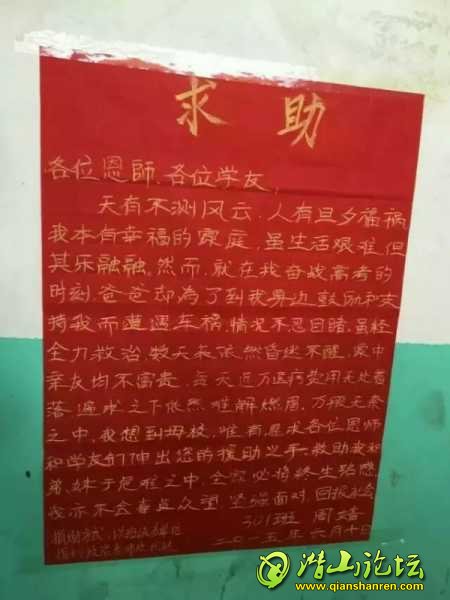 求助
各位恩師、各位学友，
天有不测风云，人有旦夕福祸
我本有幸福的家庭，虽生活艰难但
其乐融融。然而，就在我奋战高考的
时刻，爸爸却為了到我身边鼓励和支
持我而遭遇车祸，情况不忍目睹，虽经
全力救治，数天来依然昏迷不醒，家中
亲友均不富贵，每天近万医疗费用无处着
落，遍求之下依然难解燃眉，万般无奈
之中，我想到母校，唯有恳求各位恩师
和学友们伸出您的援助之手，救助我和
弟、妹于危难之中，全家必将终生铭感
我亦不会辜负众望，坚强面对，回报社会
301班 周婧
二〇一五年六月十日
捐助方式：以班级为单位
潜山论坛
www.qianshanren.com